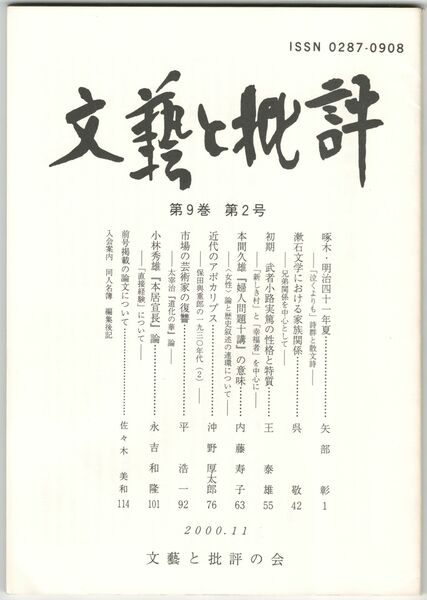 ISSN 0287-0908
文藝と批評
第9巻 第2号
啄木・明治四十一年夏…………矢部 彰 1
――「泣くよりも」詩群と散文詩――
漱石文学における家族関係…………呉 敬 42
――兄弟関係を中心として――
初期 武者小路実篤の性格と特質…………王 泰雄 55
――「新しき村」と「幸福者」を中心に――
本間久雄『婦人問題十講』の意味…………内藤寿子 63
――〈女性〉論と歴史叙述の連環について――
近代のアポカリプス…………沖野厚太郎 76
――保田與重郎の一九三〇年代(2)――
市場の芸術家の復讐…………平 浩一 92
――太宰治『道化の華』論――
小林秀雄『本居宣長』論…………永吉和隆 101
――「直接経験」について――
前号掲載の論文について…………佐々木 美和 114
入会案内 同人名簿 編集後記
2000.11
文藝と批評の会